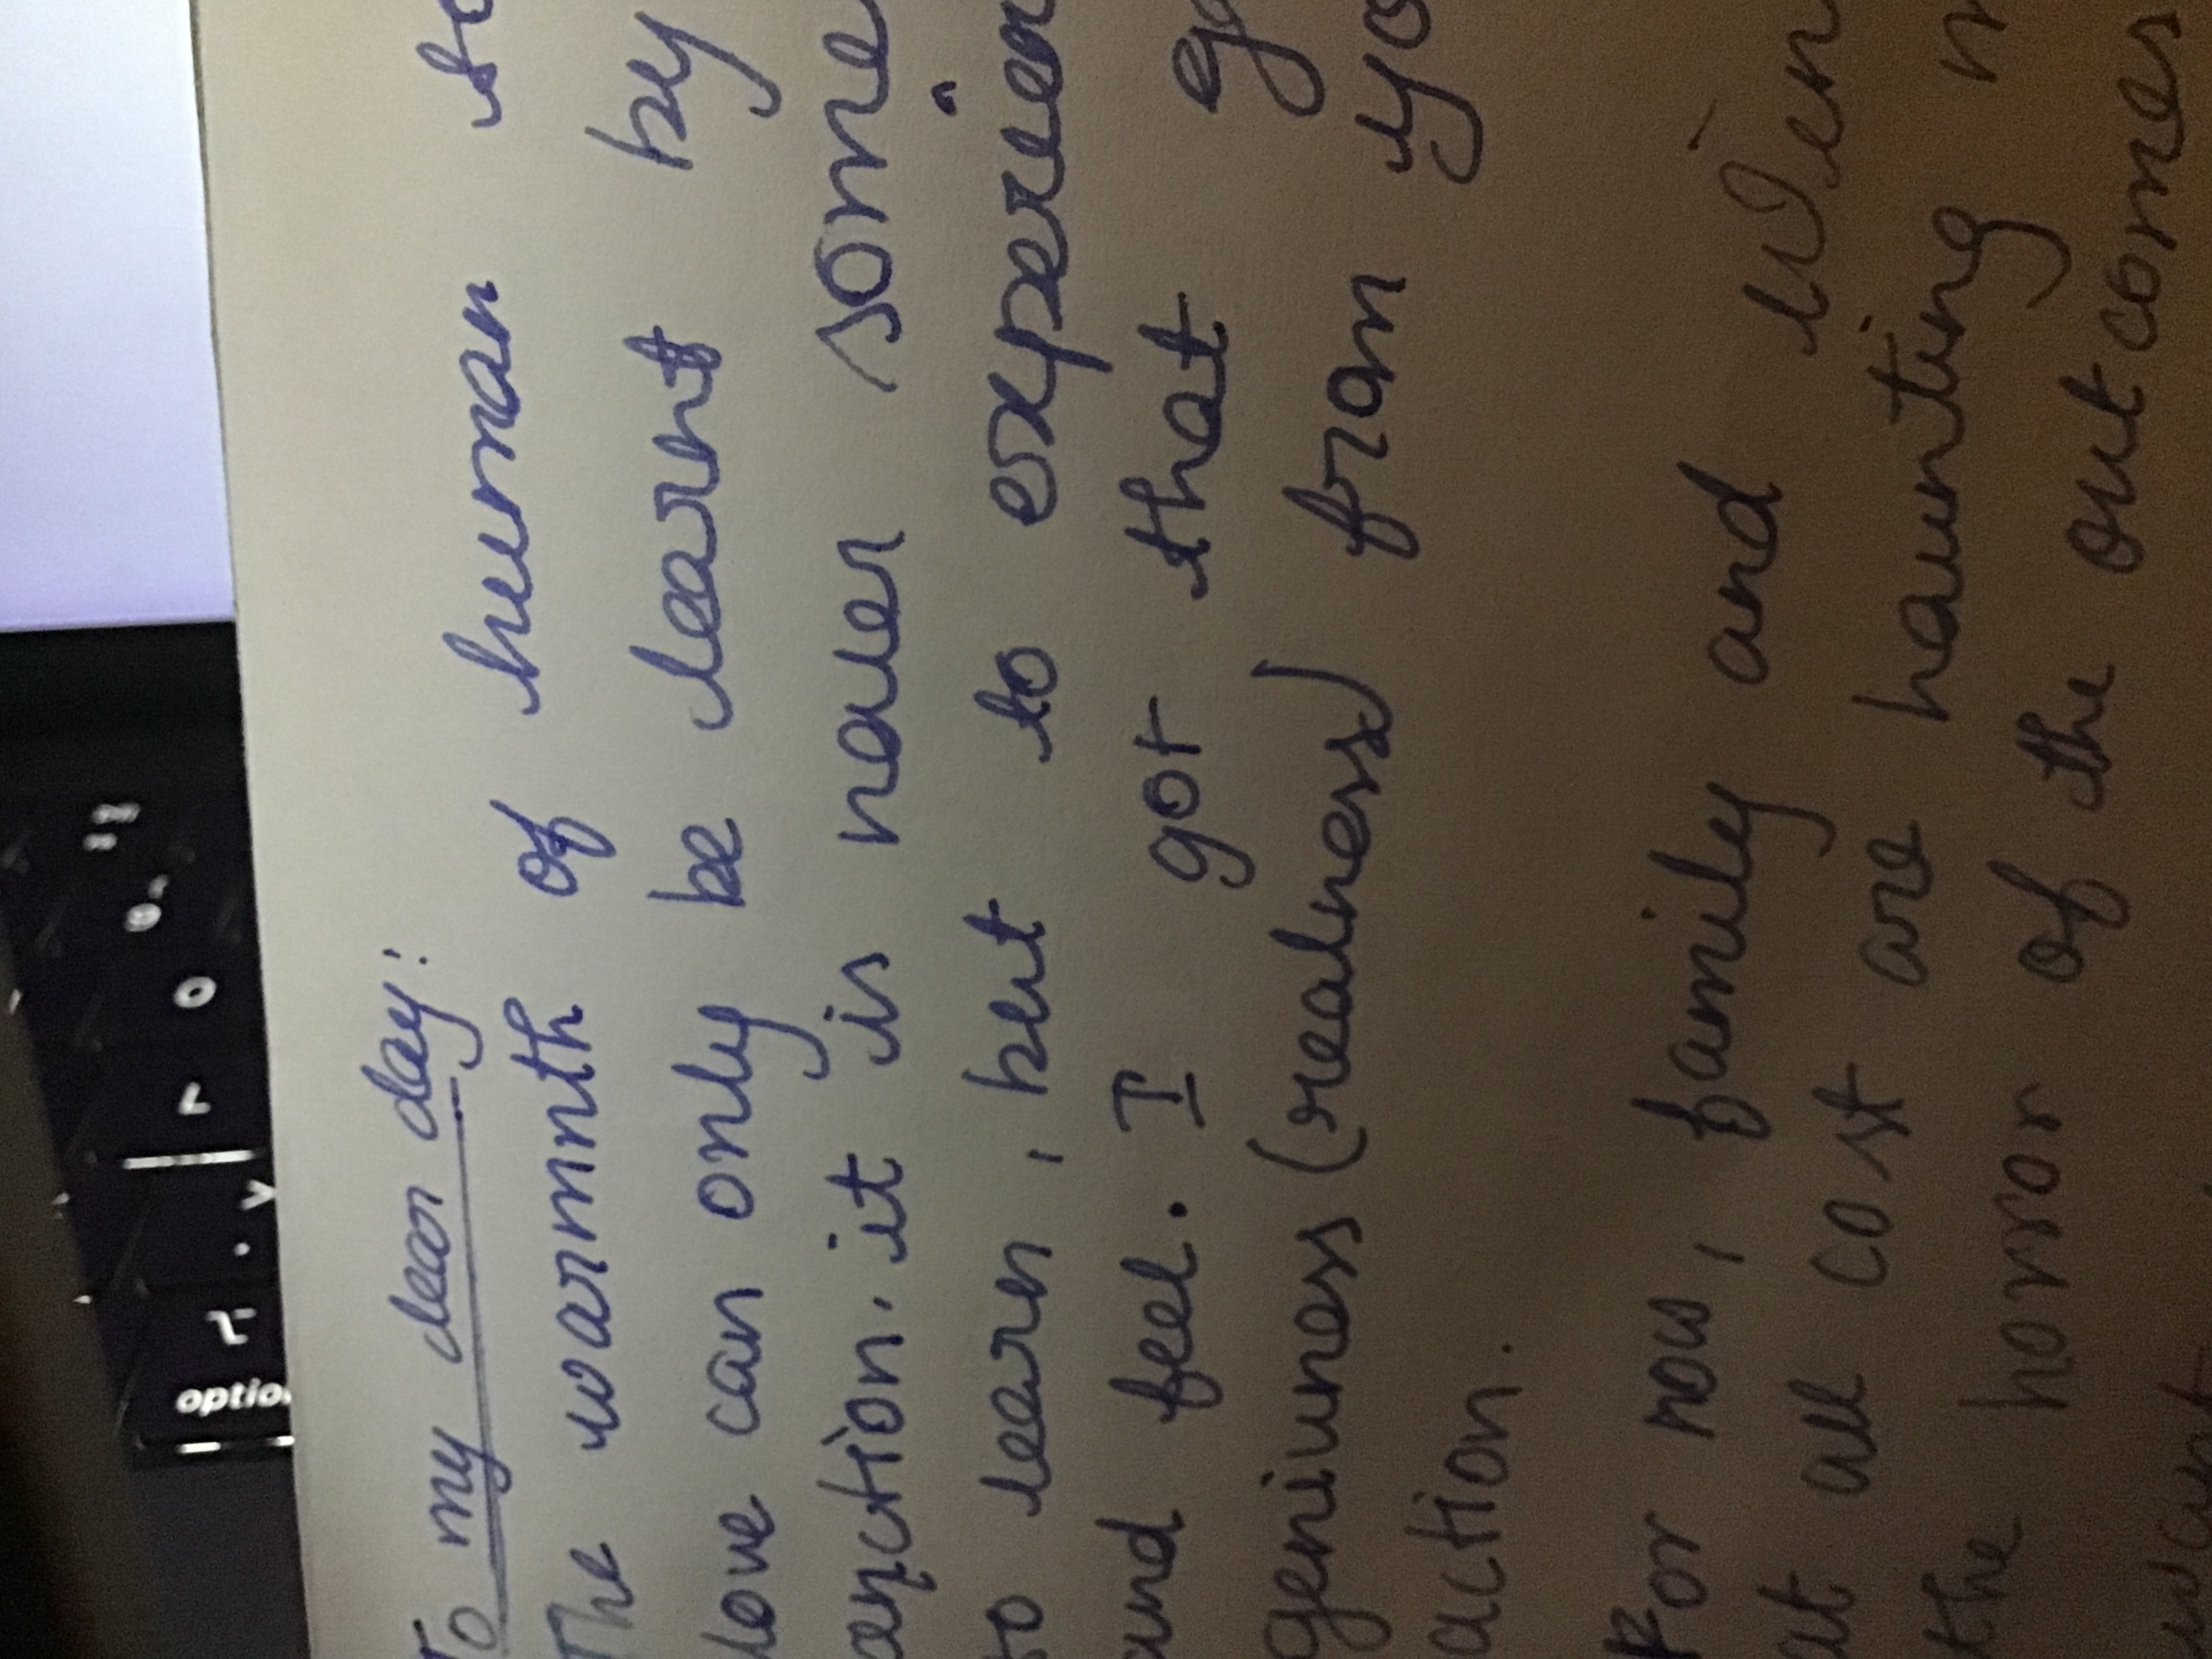 To my dear day:
The warmth of human to
love can only be learnt by
anction. it is never some
to learn, but to experien
and feel. I got that
geniuness (realness) from yo
action.
For now, family and
at all cost are haunting
the horror of the outcomes
option